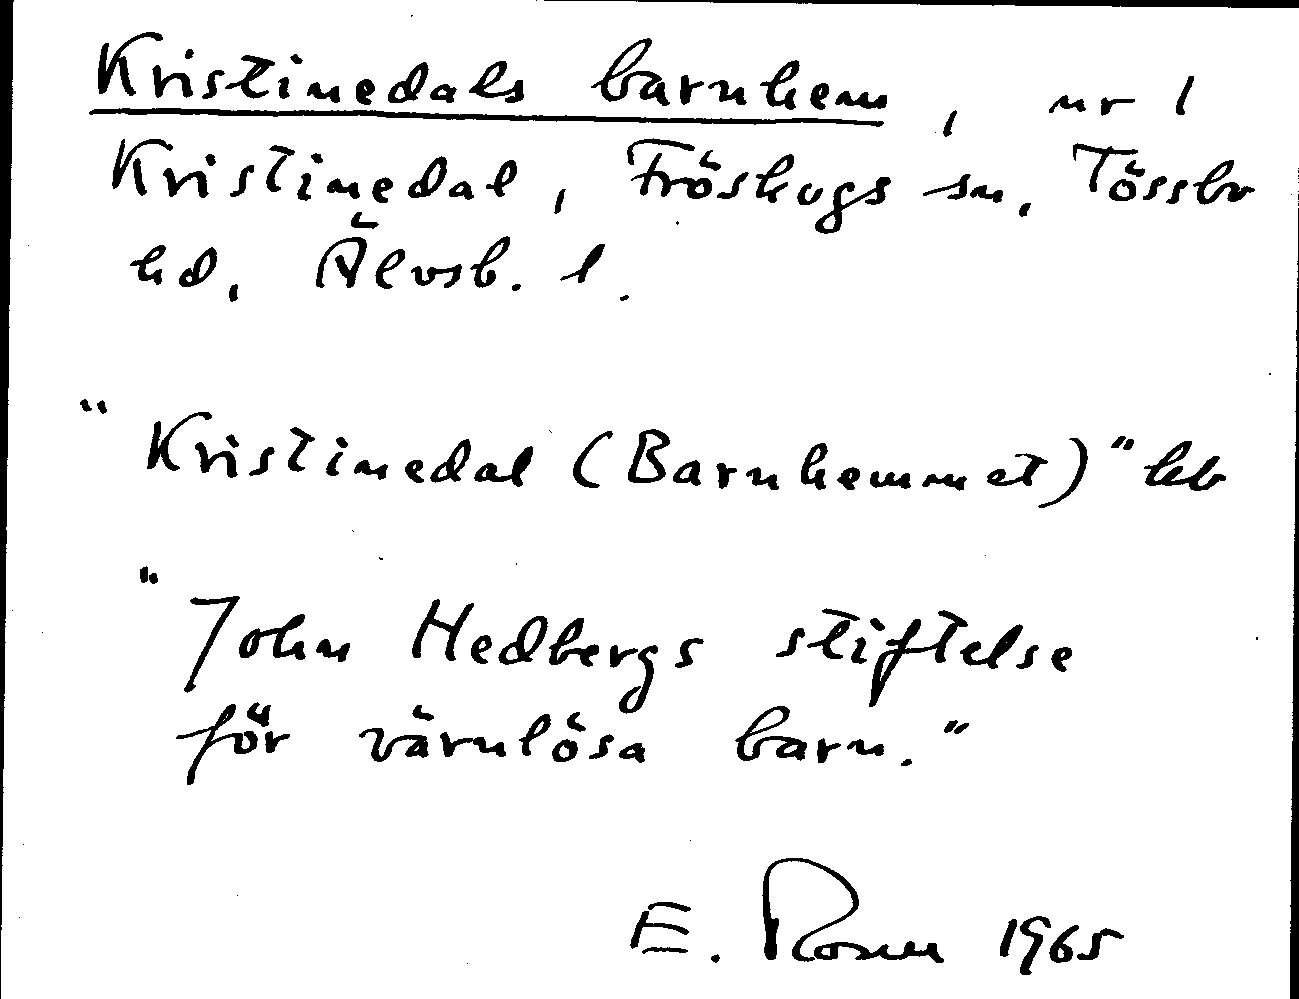 Kristinedals barnhem, nr 1
Kristinedal, Fröskogs sn, Tössbo
hd, Älvsb. l.
"Kristinedal (Barnhemmet)" hb
"John Hedbergs stiftelse
för värnlösa barn."
E. Rosm 1965